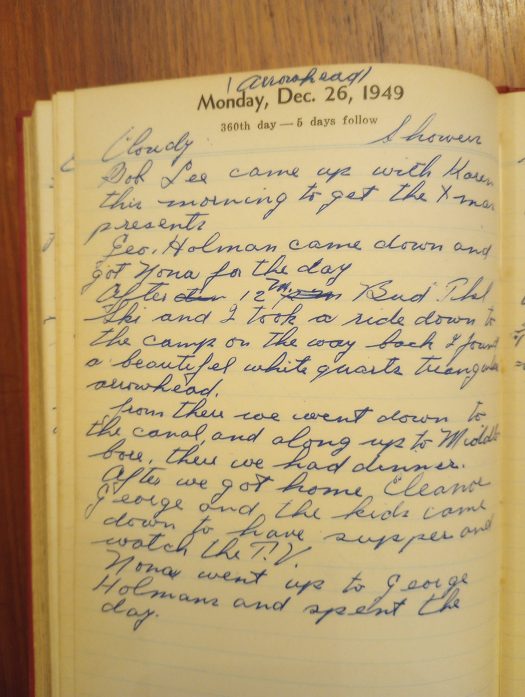 (Arrowhead)
Monday, Dec. 26, 1949
360th day — 5 days follow
Cloudy Showers
Bob Lee came up with Karen
this morning to get the X-mas
presents
Geo. Holman came down and
got Nona for the day
After 12 M. Bud
Ski and I took a ride down to
the camp on the way back I found
a beautifel white quartz triangular
arrowhead.
from there we went down to
the canal and along up to Middle
boro, there we had dinner.
After we got home Eleanor
George and the kids came
down to have supper and
watch the T.V.
Nona went up to George
Holmans and spent the
day.